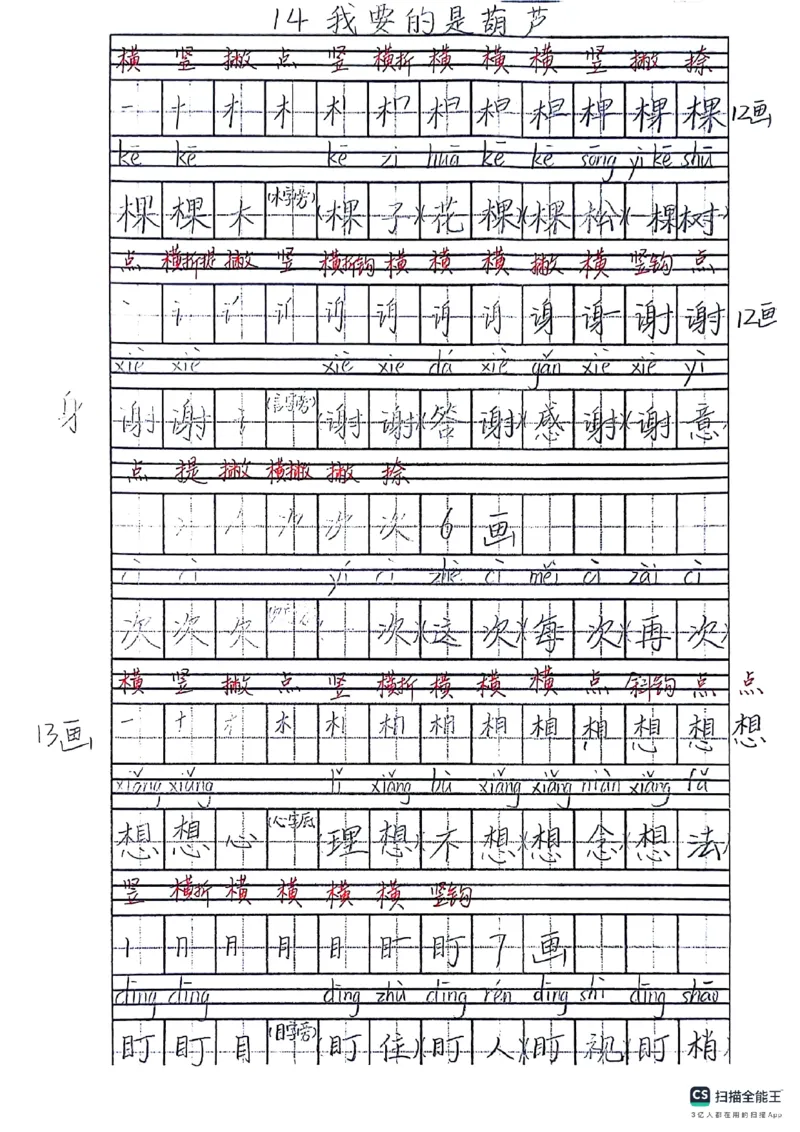 14 我要的是葫芦
横 竖 撇 点 竖 横折 横 横 横 竖 撇 捺
一 十 才 木 棵 12画
kē kē kē zi huā kē kē sōng yì kē shù
棵 棵 木 (木字旁) (棵 子)(花 棵)(棵 松)(一棵树)
点 横折提 撇 竖 横折钩 横 横 横 撇 横 竖钩 点
丶 讠 谢 谢 12画
xiè xiè xiè xie dá xiè gǎn xiè xiè yì
身
谢 谢 讠 (言字旁) (谢 谢)(答 谢)(感 谢)(谢 意)
点 提 撇 横撇 撇 捺
次 6 画
cì cì yí cì zhè cì měi cì zài cì
次 次 欠 一 次)(这 次)(每 次)(再 次)
横 竖 撇 点 竖 横折 横 横 横 点 斜钩 点 点
13画 一 十 才 木 相 相 想 想 想
xiǎng xiǎng lǐ xiǎng bù xiǎng xiǎng niàn xiǎng fǎ
想 想 心 (心字底) (理 想)(不 想)(想 念)(想 法)
竖 横折 横 横 横 横 竖钩
丨 冂 月 目 盯 7 画
dīng dīng dīng zhù dīng rén dīng shì dīng shāo
盯 盯 目 (目字旁) (盯 住)(盯 人)(盯 视)(盯 梢)
CS 扫描全能王
3亿人都在用的扫描App